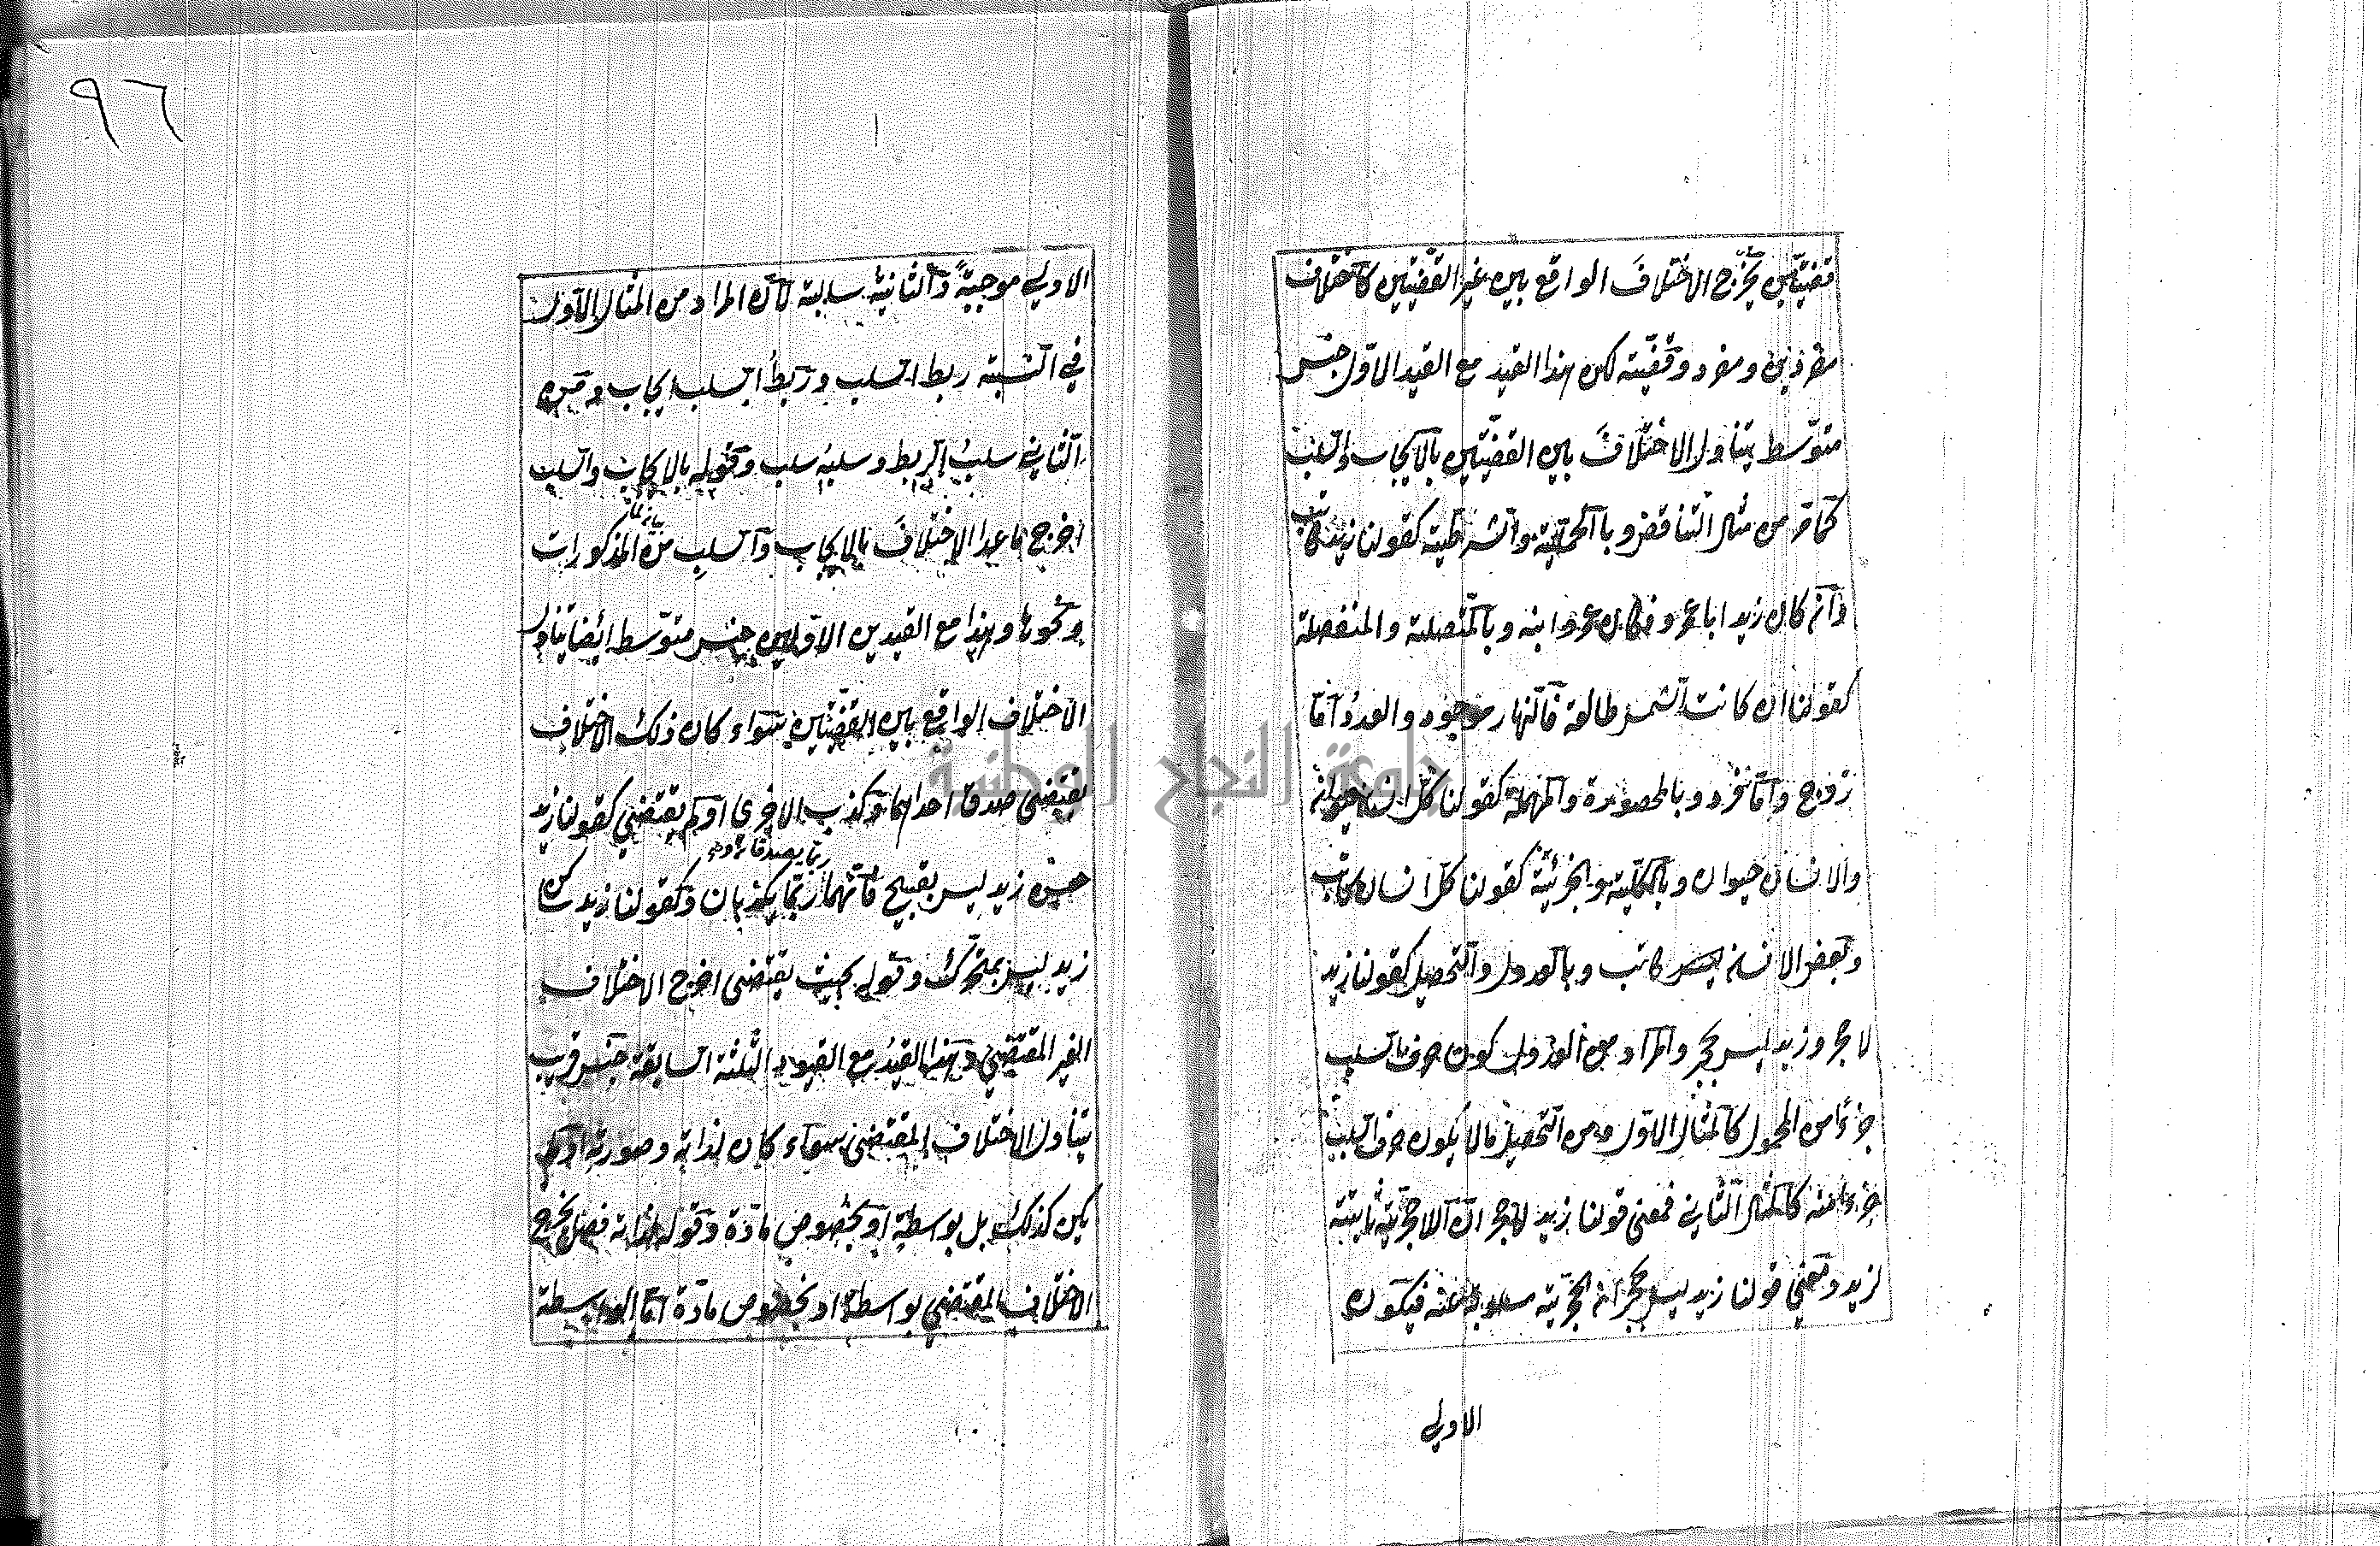 قضيتين يخرج الاختلاف الواقع بين غير القضيتين كاختلاف
مفردين ومفرد وقضية لكن هذا القيد مع القيد الاول جنس
متوسط يتناول الاختلاف بين القضيتين بالايجاب والسلب
كما مر من مثال التناقض وبالحملية والشرطية كقولنا زيد كاتب
وان كان زيد ابا عمرو فكان عمرو ابنه وبالمتصلة والمنفصلة
كقولنا ان كانت الشمس طالعة فالنهار موجود والعدد اما
زوج واما فرد وبالمحصورة والمهملة كقولنا كل انسان حيوان
والانسان حيوان وبالكلية والجزئية كقولنا كل انسان كاتب
وبعض الانسان ليس كاتب وبالعدول والتحصيل كقولنا زيد
لا حجر وزيد ليس بحجر والمراد من العدول كون حرف السلب
جزءا من المحمول كالمثال الاول ومن التحصيل مالا يكون حرف السلب
جزءا منه كالمثال الثاني فمعنى قولنا زيد لا حجر ان اللاحجرية ثابتة
لزيد ومعنى قولنا زيد ليس بحجر ان الحجرية مسلوبة عنه فيكون
الاولى
٩٦
الاولى موجبة والثانية سالبة لان المراد من المثال الاول
في النسبة ربط السلب وربط السلب ايجاب ومن
الثاني سلب الربط وسلبه سلب وقوله بالايجاب والسلب
اخرج ما عدا الاختلاف بالايجاب والسلب من المذكورات
ونحوها وهذا مع القيدين الاولين جنس متوسط ايضا يتناول
الاختلاف الواقع بين القضيتين سواء كان ذلك الاختلاف
يقتضي صدق احداهما وكذب الاخرى او لم يقتضي كقولنا زيد
حسن زيد ليس بقبيح فانهما ربما يكذبان وكقولنا زيد ساكن
زيد ليس بمتحرك وقوله بحيث يقتضى اخرج الاختلاف
الغير المقتضي وهذا القيد مع القيود الثلثة السابقة جنس قريب
يتناول الاختلاف المقتضى سواء كان لذاته وصورته او لم
يكن كذلك بل بوسطة او بخصوص مادة وقوله لذاته فصل يخرج
الاختلاف المقتضي بواسطة او بخصوص مادة اما الواسطة